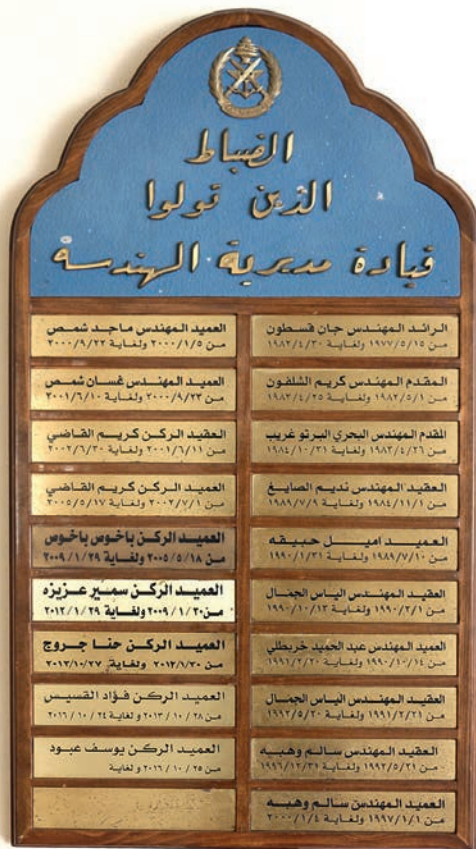 الضباط
الذين تولوا
قيادة مديرية الهندسة
الرائد المهندس جان قسطون
من ١٩٧٧/٥/١٥ ولغاية ١٩٨٢/٤/٣٠
المقدم المهندس كريم الشلفون
من ١٩٨٢/٥/١ ولغاية ١٩٨٣/٤/٢٥
المقدم المهندس البحري البرتو غريب
من ١٩٨٣/٤/٢٦ ولغاية ١٩٨٤/١٠/٣١
العقيد المهندس نديم الصايغ
من ١٩٨٤/١١/١ ولغاية ١٩٨٩/٧/٩
العميد اميل حبيقه
من ١٩٨٩/٧/١٠ ولغاية ١٩٩٠/١/٣١
العقيد المهندس الياس الجمال
من ١٩٩٠/٢/١ ولغاية ١٩٩٠/١٠/١٣
العميد المهندس عبد الحميد خربطلي
من ١٩٩٠/١٠/١٤ ولغاية ١٩٩١/٢/٢٠
العقيد المهندس الياس الجمال
من ١٩٩١/٢/٢١ ولغاية ١٩٩٢/٥/٢٠
العقيد المهندس سالم وهبه
من ١٩٩٢/٥/٢١ ولغاية ١٩٩٦/١٢/٣١
العميد المهندس سالم وهبه
من ١٩٩٧/١/١ ولغاية ٢٠٠٠/١/٤
العميد المهندس ماجد شمص
من ٢٠٠٠/١/٥ ولغاية ٢٠٠٠/٩/٢٢
العميد المهندس غسان شمص
من ٢٠٠٠/٩/٢٣ ولغاية ٢٠٠١/٦/١٠
العقيد الركن كريم القاضي
من ٢٠٠١/٦/١١ ولغاية ٢٠٠٢/٦/٣٠
العميد الركن كريم القاضي
من ٢٠٠٢/٧/١ ولغاية ٢٠٠٥/٥/١٧
العميد الركن باخوس باخوس
من ٢٠٠٥/٥/١٨ ولغاية ٢٠٠٩/١/٢٩
العميد الركن سمير عزيزه
من ٢٠٠٩/١/٣٠ ولغاية ٢٠١٢/١/٢٩
العميد الركن حنا جروج
من ٢٠١٢/١/٣٠ ولغاية ٢٠١٣/١٠/٢٧
العميد الركن فؤاد القسيس
من ٢٨ / ١٠ / ٢٠١٣ ولغاية ٢٤ / ١٠ / ٢٠١٦
العميد الركن يوسف عبود
من ٢٥ / ١٠ / ٢٠١٦ ولغاية